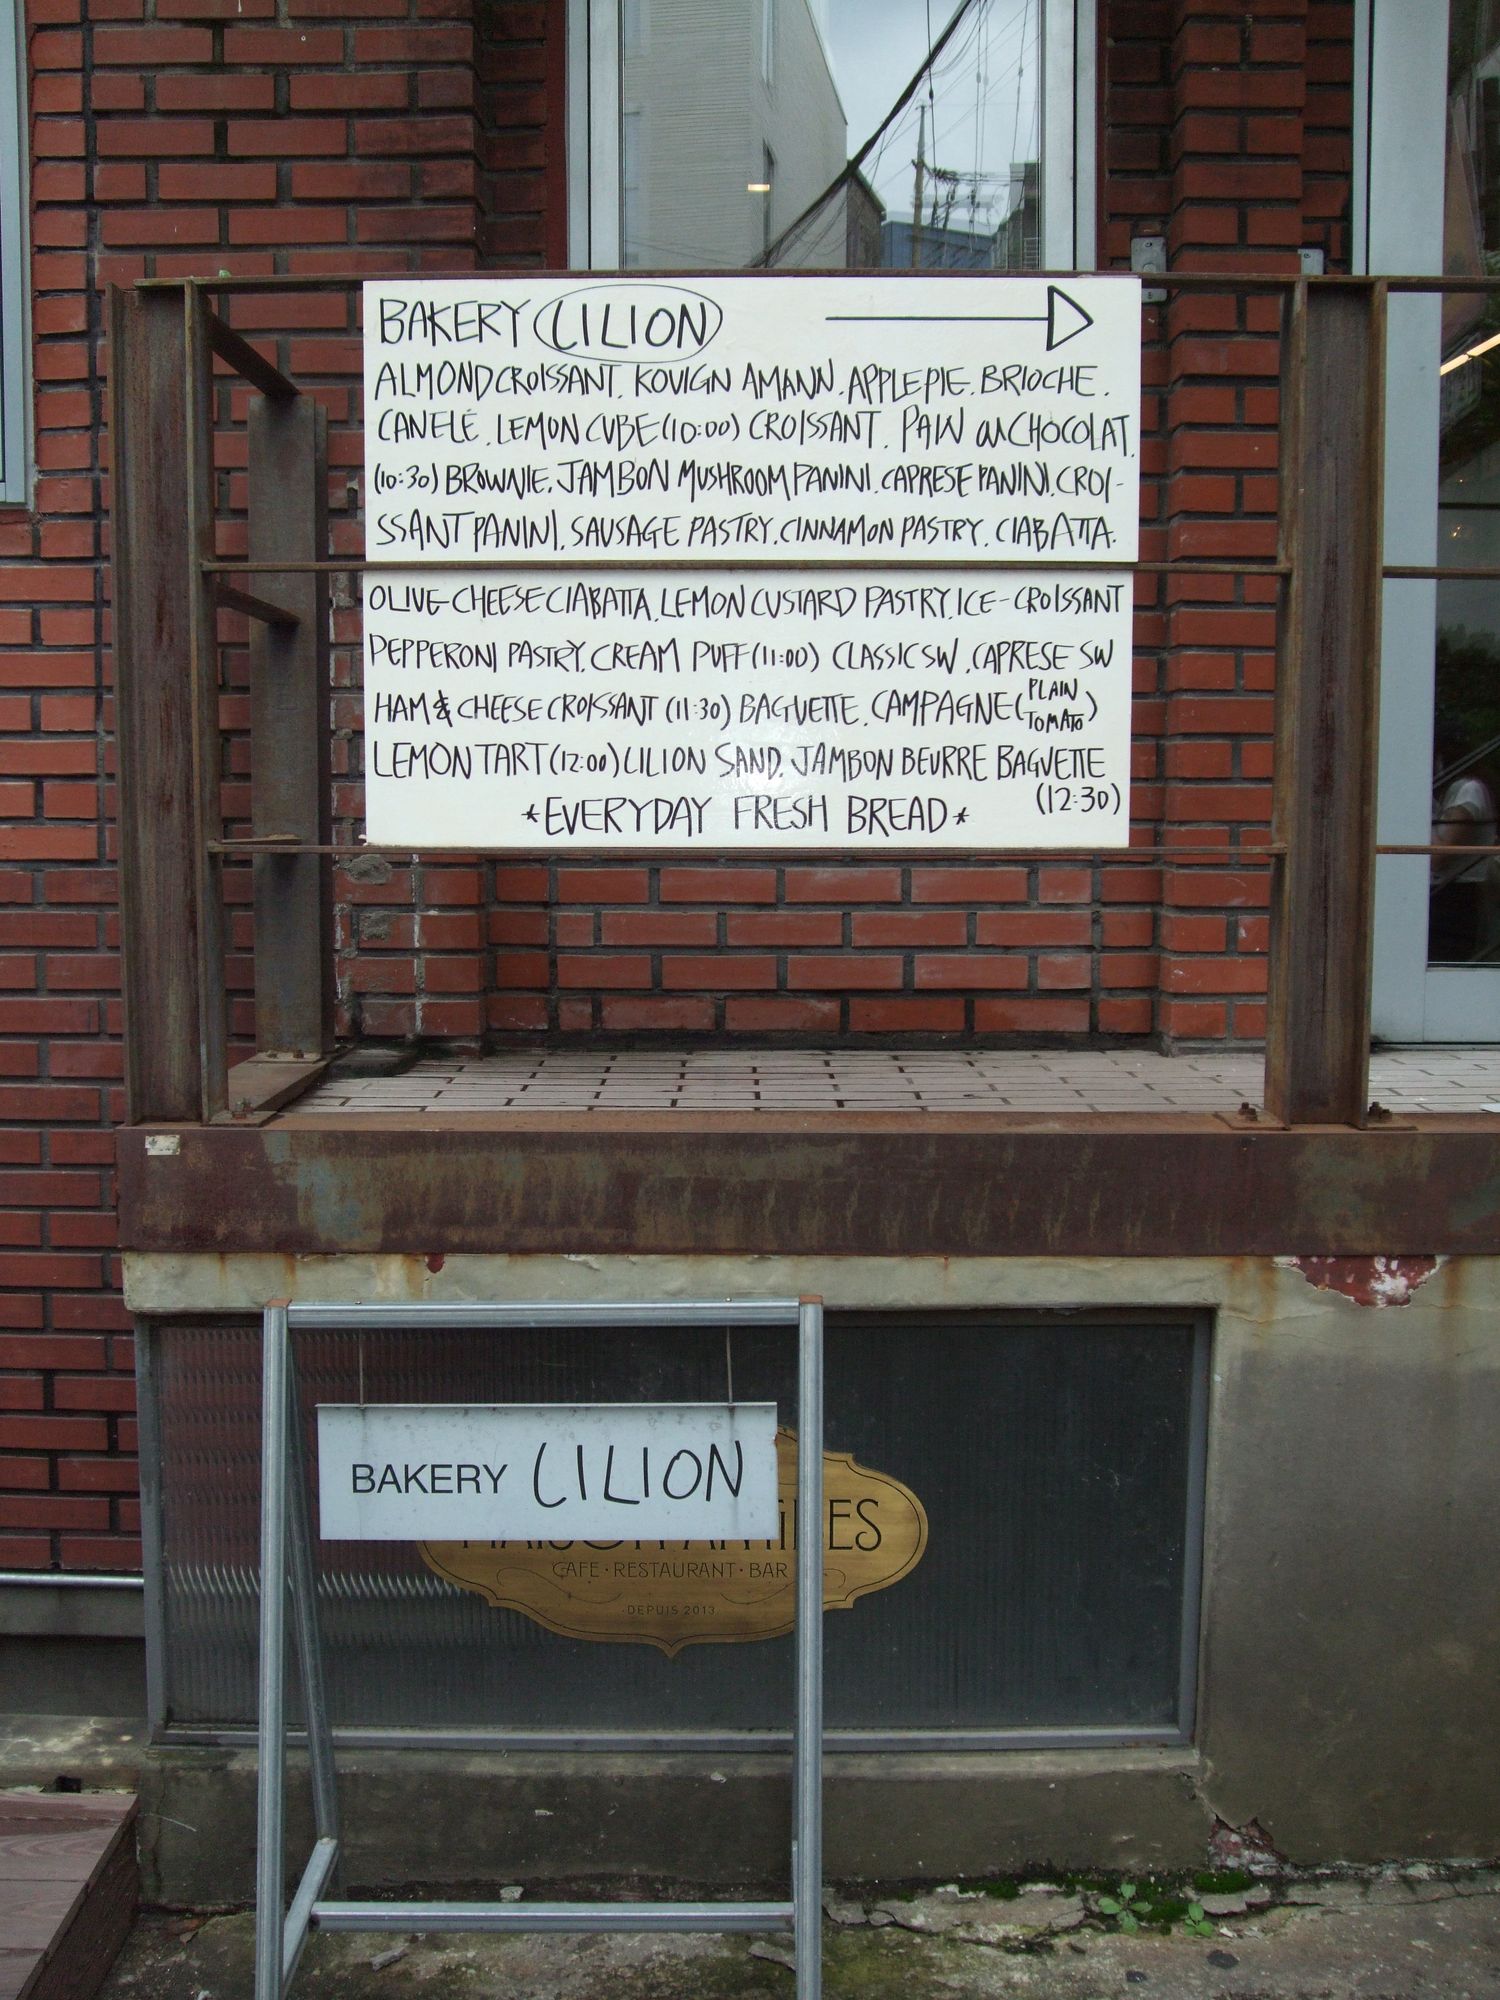 BAKERY LILION
ALMOND CROISSANT. KOUIGN AMANN. APPLE PIE. BRIOCHE.
CANELÉ. LEMON CUBE (10:00) CROISSANT. PAIN au CHOCOLAT.
(10:30) BROWNIE. JAMBON MUSHROOM PANINI. CAPRESE PANINI. CROI-
SSANT PANINI. SAUSAGE PASTRY. CINNAMON PASTRY. CIABATTA.
OLIVE-CHEESE CIABATTA. LEMON CUSTARD PASTRY. ICE-CROISSANT
PEPPERONI PASTRY. CREAM PUFF (11:00) CLASSIC SW. CAPRESE SW
HAM & CHEESE CROISSANT (11:30) BAGUETTE. CAMPAGNE (PLAIN TOMATO)
LEMON TART (12:00) LILION SAND. JAMBON BEURRE BAGUETTE
(12:30)
*EVERYDAY FRESH BREAD*
BAKERY LILION
CAFE · RESTAURANT · BAR
DEPUIS 2013